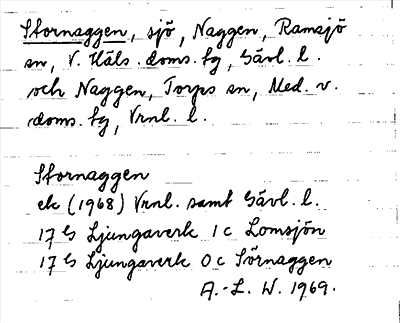 Stornaggen, sjö, Naggen, Ramsjö
sn, V. Häls. doms. hg, Gävl. l.
och Naggen, Torps sn, Med. v.
doms. hg, Vrnl. l.
Stornaggen
ek (1968) Vrnl. samt Gävl. l.
17 G Ljungaverk 1 c Lomsjön
17 G Ljungaverk 0 c Sörnaggen
A.-L. W. 1969.